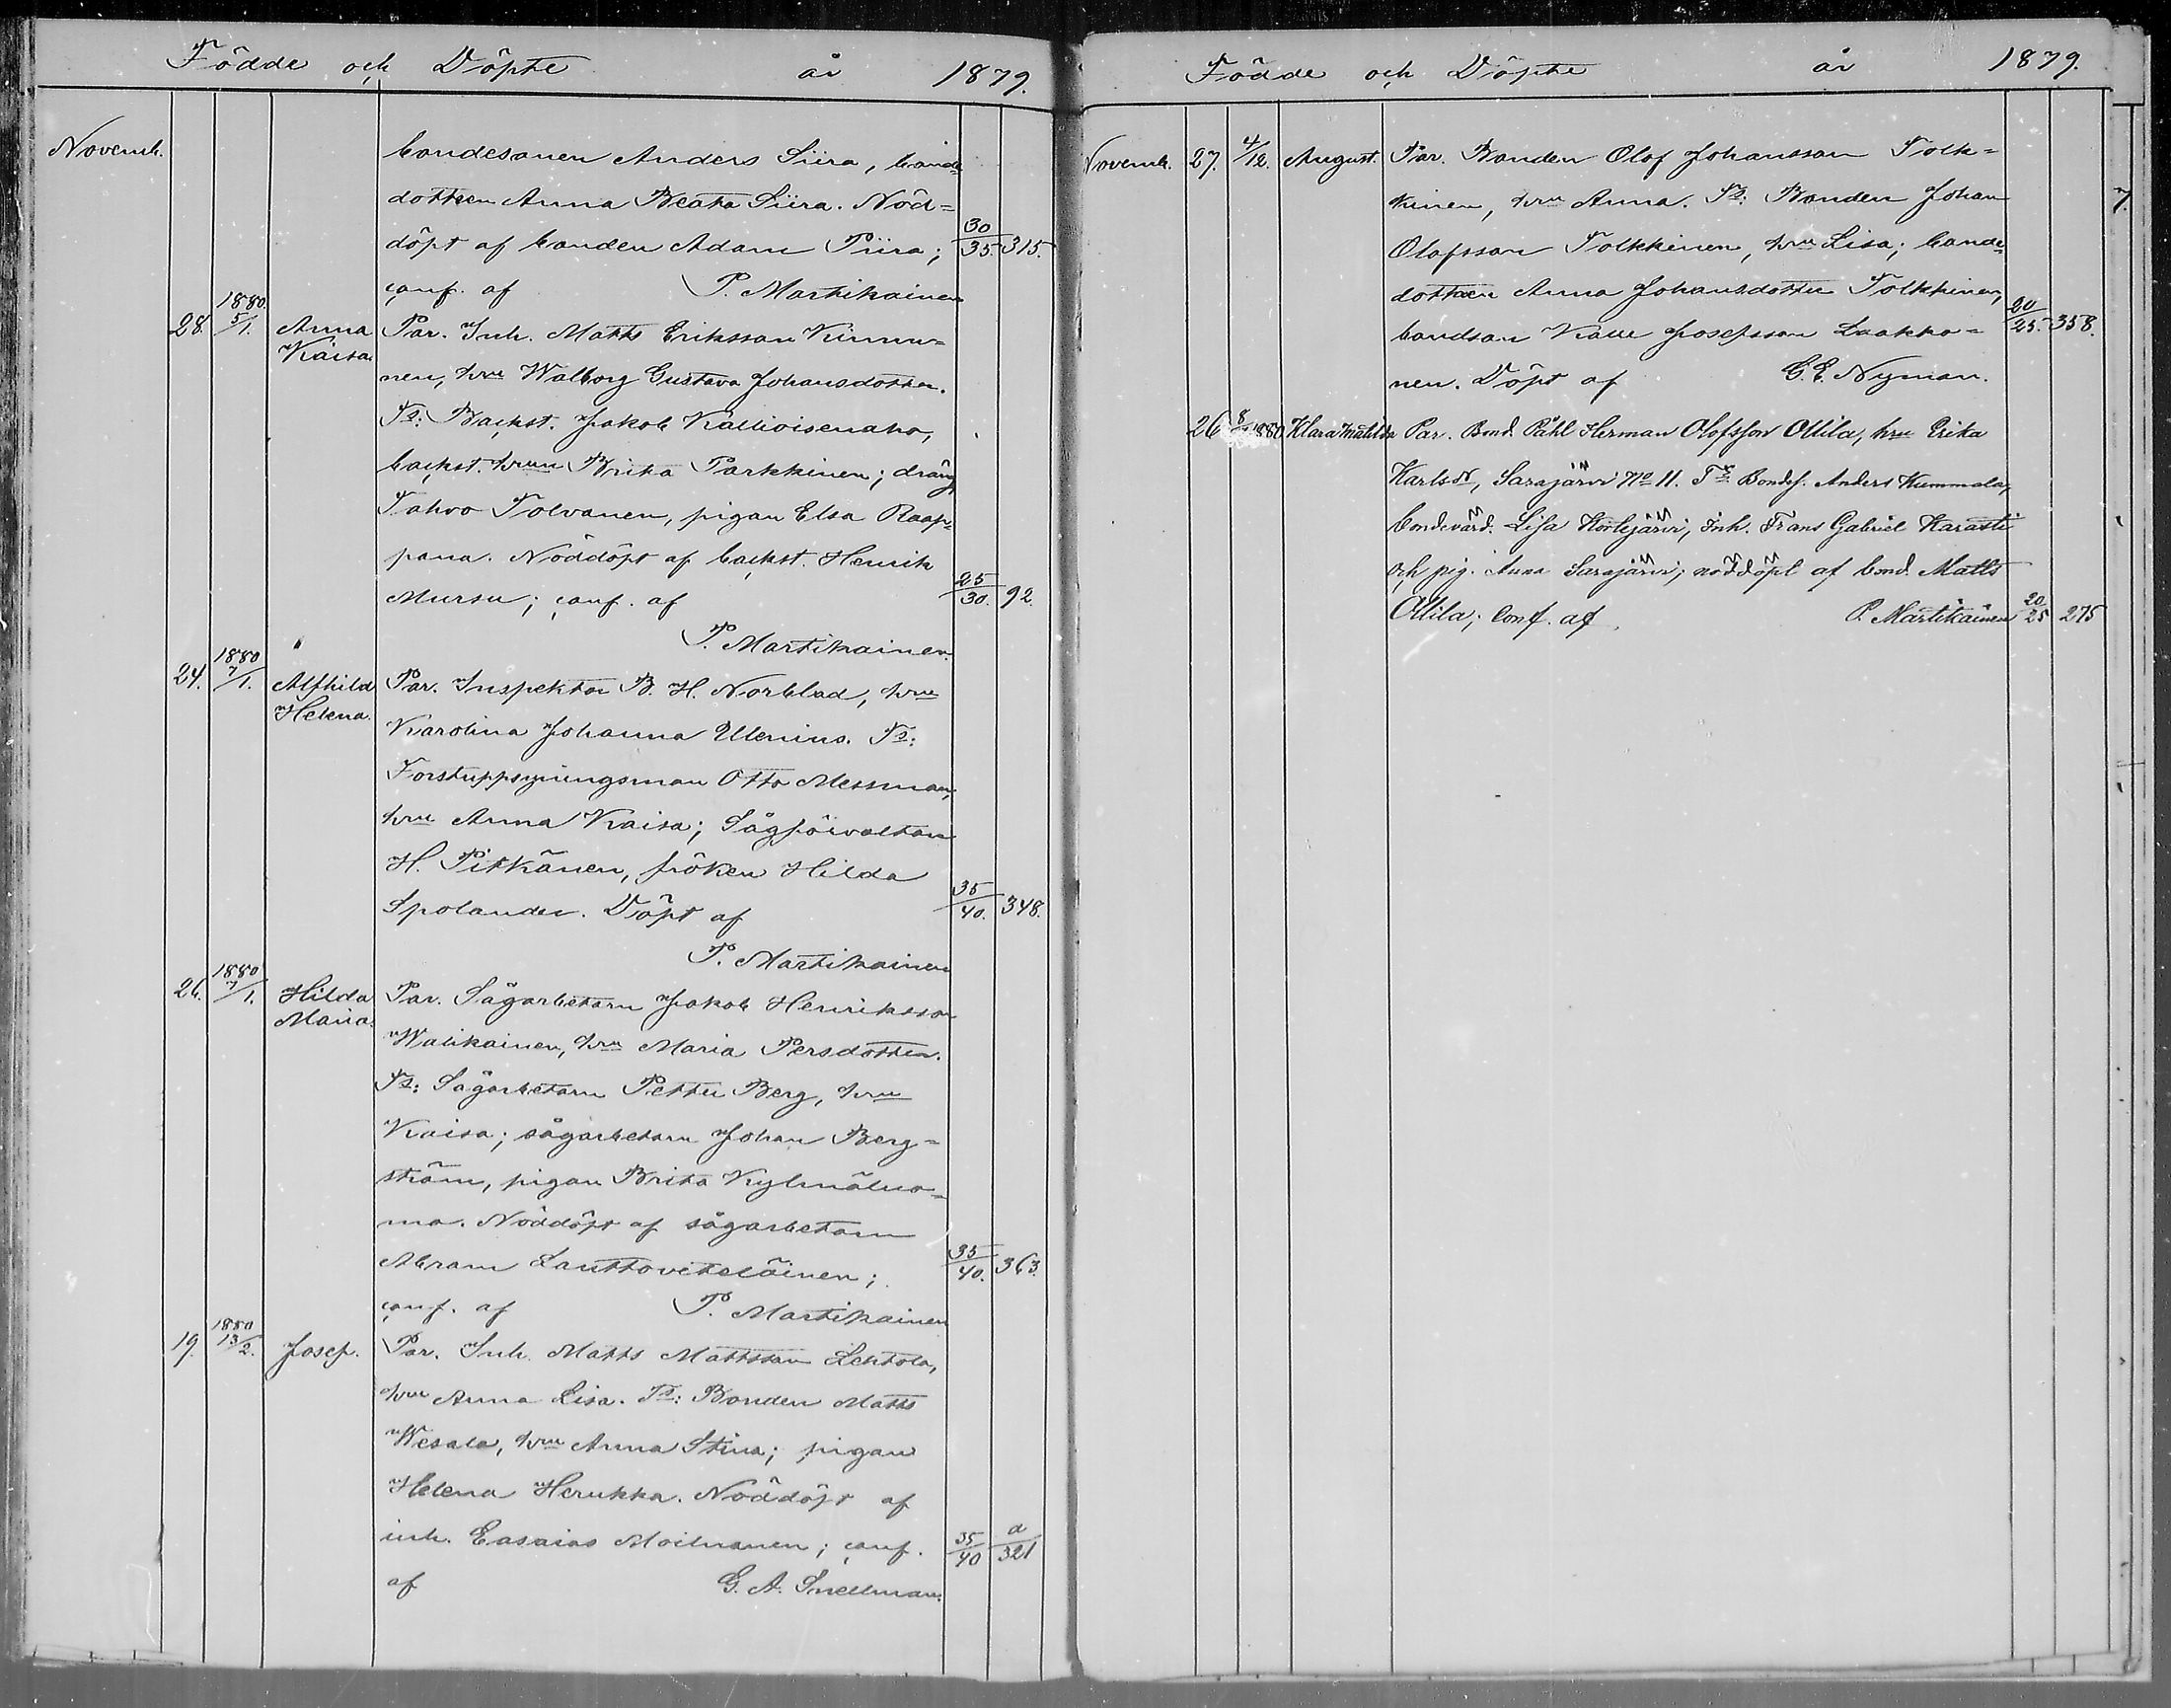 Födde och Döpte år 1879.
Novemb.
bondesonen Anders Siira, bonde-
dottren Anna Beata Siira. Nöd=
döpt af bonden Adam Piira; 30/35. 315.
conf. af P. Martikainen
28. 1880 5/1. Anna Kaisa. Par. Inh. Matts Eriksson Kinnu=
nen, hru Walborg Gustava Johansdotter.
Ts: Backst. Jakob Kallioisenaho,
backst. hrun Brita Parkkinen; dräng
Tahvo Tolvanen, pigan Elsa Raap=
pana. Nöddöpt af backst. Henrik
Mursu; conf. af 25/30. 92.
P. Martikainen.
24. 1880 7/1. Alfhild Helena. Par. Inspektor B. H. Norblad, hru
Karolina Johanna Ulenius. Ts:
Forstuppsyningsman Otto Messman,
hru Anna Kaisa; Sågförvaltare
H. Pitkänen, fröken Hilda
Spolander. Döpt af 35/40. 348.
P. Martikainen
26. 1880 7/1. Hilda Maria. Par. Sågarbetarn Jakob Henriksson
Walikainen, hru Maria Persdotter.
Ts: Sågarbetarn Petter Berg, hru
Kaisa; sågarbetarn Johan Berg=
ström, pigan Brita Kylmäluo=
ma. Nöddöpt af sågarbetarn
Abram Lauttoveteläinen; 35/40. 363.
conf. af P. Martikainen
19. 1880 13/2. Josef. Par. Inh. Matts Mattsson Lehtola,
hru Anna Lisa. Ts: Bonden Matts
Wesala, hru Anna Stina; pigan
Helena Herukka. Nöddöpt af
inh. Easaias Moilanen; conf. 35/40 a/321
af G. A. Snellman.
Födde och Döpte år 1879.
Novemb. 27. 4/12. August. Par. Bonden Olof Johansson Tolk=
kinen, hru Anna. Ts: Bonden Johan
Olofsson Tolkkinen, hru Lisa; bonde-
dottren Anna Johansdotter Tolkkinen,
bondson Kalle Josefsson Laakko= 20/25. 358.
nen. Döpt af G. E. Nyman.
26 8/1 1880 Klara Matilda Par. Bond. Påhl Herman Olofsson Ollila, hru Erika
Karlsdr, Sarajärvi No 11. Ts Bondes. Anders Kummala,
bondevärd. Lisa Kortejärvi, Inh. Frans Gabriel Karasti
och pig. Anna Sarajärvi; nöddöpt af bond. Matts
Ollila; Conf. af. P. Martikainen 20/25 275
7.